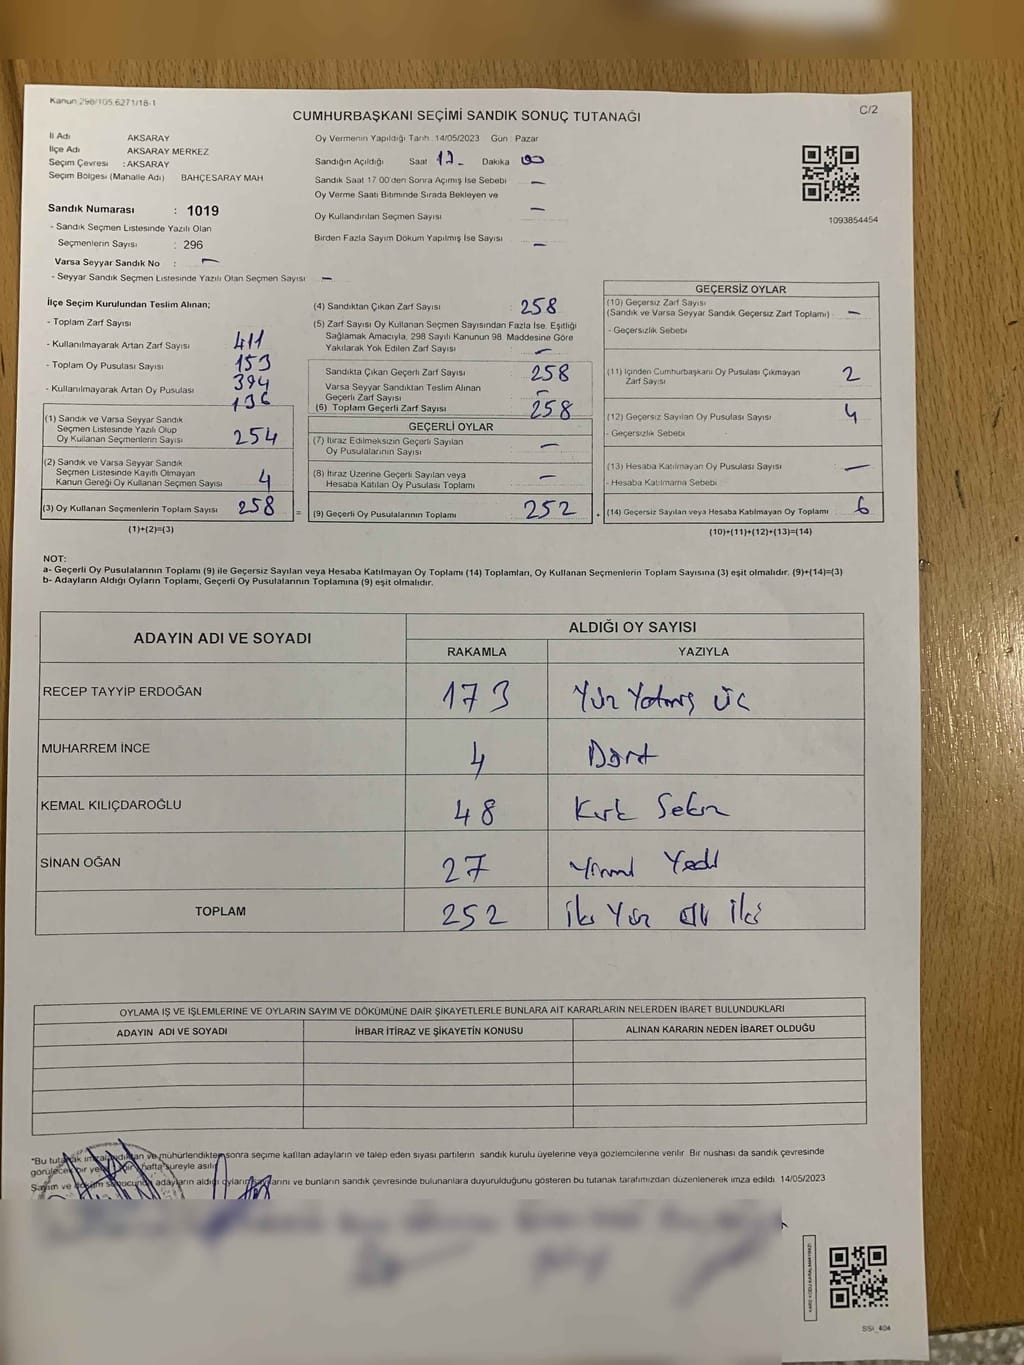 Kanun 298/105.6271/18-1
C/2
CUMHURBAŞKANI SEÇİMİ SANDIK SONUÇ TUTANAĞI
İl Adı AKSARAY
İlçe Adı AKSARAY MERKEZ
Seçim Çevresi : AKSARAY
Seçim Bölgesi (Mahalle Adı) BAHÇESARAY MAH
Sandık Numarası : 1019
- Sandık Seçmen Listesinde Yazılı Olan
Seçmenlerin Sayısı : 296
Varsa Seyyar Sandık No : —
- Seyyar Sandık Seçmen Listesinde Yazılı Olan Seçmen Sayısı —
Oy Vermenin Yapıldığı Tarih :14/05/2023 Gün : Pazar
Sandığın Açıldığı Saat 17 Dakika 00
Sandık Saat 17:00'den Sonra Açımış İse Sebebi —
Oy Verme Saati Bitiminde Sırada Bekleyen ve
Oy Kullandırılan Seçmen Sayısı —
Birden Fazla Sayım Döküm Yapılmış İse Sayısı —
1093854454
İlçe Seçim Kurulundan Teslim Alınan;
- Toplam Zarf Sayısı 411
- Kullanılmayarak Artan Zarf Sayısı 153
- Toplam Oy Pusulası Sayısı 394
- Kullanılmayarak Artan Oy Pusulası 136
(1) Sandık ve Varsa Seyyar Sandık
Seçmen Listesinde Yazılı Olup
Oy Kullanan Seçmenlerin Sayısı 254
(2) Sandık ve Varsa Seyyar Sandık
Seçmen Listesinde Kayıtlı Olmayan
Kanun Gereği Oy Kullanan Seçmen Sayısı 4
(3) Oy Kullanan Seçmenlerin Toplam Sayısı 258 =
(1)+(2)=(3)
(4) Sandıktan Çıkan Zarf Sayısı : 258
(5) Zarf Sayısı Oy Kullanan Seçmen Sayısından Fazla İse, Eşitliği
Sağlamak Amacıyla, 298 Sayılı Kanunun 98. Maddesine Göre
Yakılarak Yok Edilen Zarf Sayısı —
Sandıkta Çıkan Geçerli Zarf Sayısı 258
Varsa Seyyar Sandıktan Teslim Alınan
Geçerli Zarf Sayısı —
(6) Toplam Geçerli Zarf Sayısı 258
GEÇERLİ OYLAR
(7) İtiraz Edilmeksizin Geçerli Sayılan
Oy Pusulalarının Sayısı —
(8) İtiraz Üzerine Geçerli Sayılan veya
Hesaba Katılan Oy Pusulası Toplamı —
(9) Geçerli Oy Pusulalarının Toplamı 252 +
GEÇERSİZ OYLAR
(10) Geçersiz Zarf Sayısı
(Sandık ve Varsa Seyyar Sandık Geçersiz Zarf Toplamı) —
- Geçersizlik Sebebi
(11) İçinden Cumhurbaşkanı Oy Pusulası Çıkmayan
Zarf Sayısı 2
(12) Geçersiz Sayılan Oy Pusulası Sayısı 4
- Geçersizlik Sebebi
(13) Hesaba Katılmayan Oy Pusulası Sayısı —
- Hesaba Katılmama Sebebi
(14) Geçersiz Sayılan veya Hesaba Katılmayan Oy Toplamı 6
(10)+(11)+(12)+(13)=(14)
NOT:
a- Geçerli Oy Pusulalarının Toplamı (9) ile Geçersiz Sayılan veya Hesaba Katılmayan Oy Toplamı (14) Toplamları, Oy Kullanan Seçmenlerin Toplam Sayısına (3) eşit olmalıdır. (9)+(14)=(3)
b- Adayların Aldığı Oyların Toplamı, Geçerli Oy Pusulalarının Toplamına (9) eşit olmalıdır.
ADAYIN ADI VE SOYADI ALDIĞI OY SAYISI
RAKAMLA YAZIYLA
RECEP TAYYİP ERDOĞAN 173 Yüz Yetmiş Üç
MUHARREM İNCE 4 Dört
KEMAL KILIÇDAROĞLU 48 Kırk Sekiz
SİNAN OĞAN 27 Yirmi Yedi
TOPLAM 252 İki Yüz elli İki
OYLAMA İŞ VE İŞLEMLERİNE VE OYLARIN SAYIM VE DÖKÜMÜNE DAİR ŞİKAYETLERLE BUNLARA AİT KARARLARIN NELERDEN İBARET BULUNDUKLARI
ADAYIN ADI VE SOYADI İHBAR İTİRAZ VE ŞİKAYETİN KONUSU ALINAN KARARIN NEDEN İBARET OLDUĞU
*Bu tutanak imzalandıktan ve mühürlendikten sonra seçime katılan adayların ve talep eden siyasi partilerin sandık kurulu üyelerine veya gözlemcilerine verilir. Bir nüshası da sandık çevresinde
görülecek bir yere bir hafta süreyle asılır.
Sayım ve döküm sonucunda adayların aldığı oyların sayılarını ve bunların sandık çevresinde bulunanlara duyurulduğunu gösteren bu tutanak tarafımızdan düzenlenerek imza edildi. 14/05/2023
SSI_404